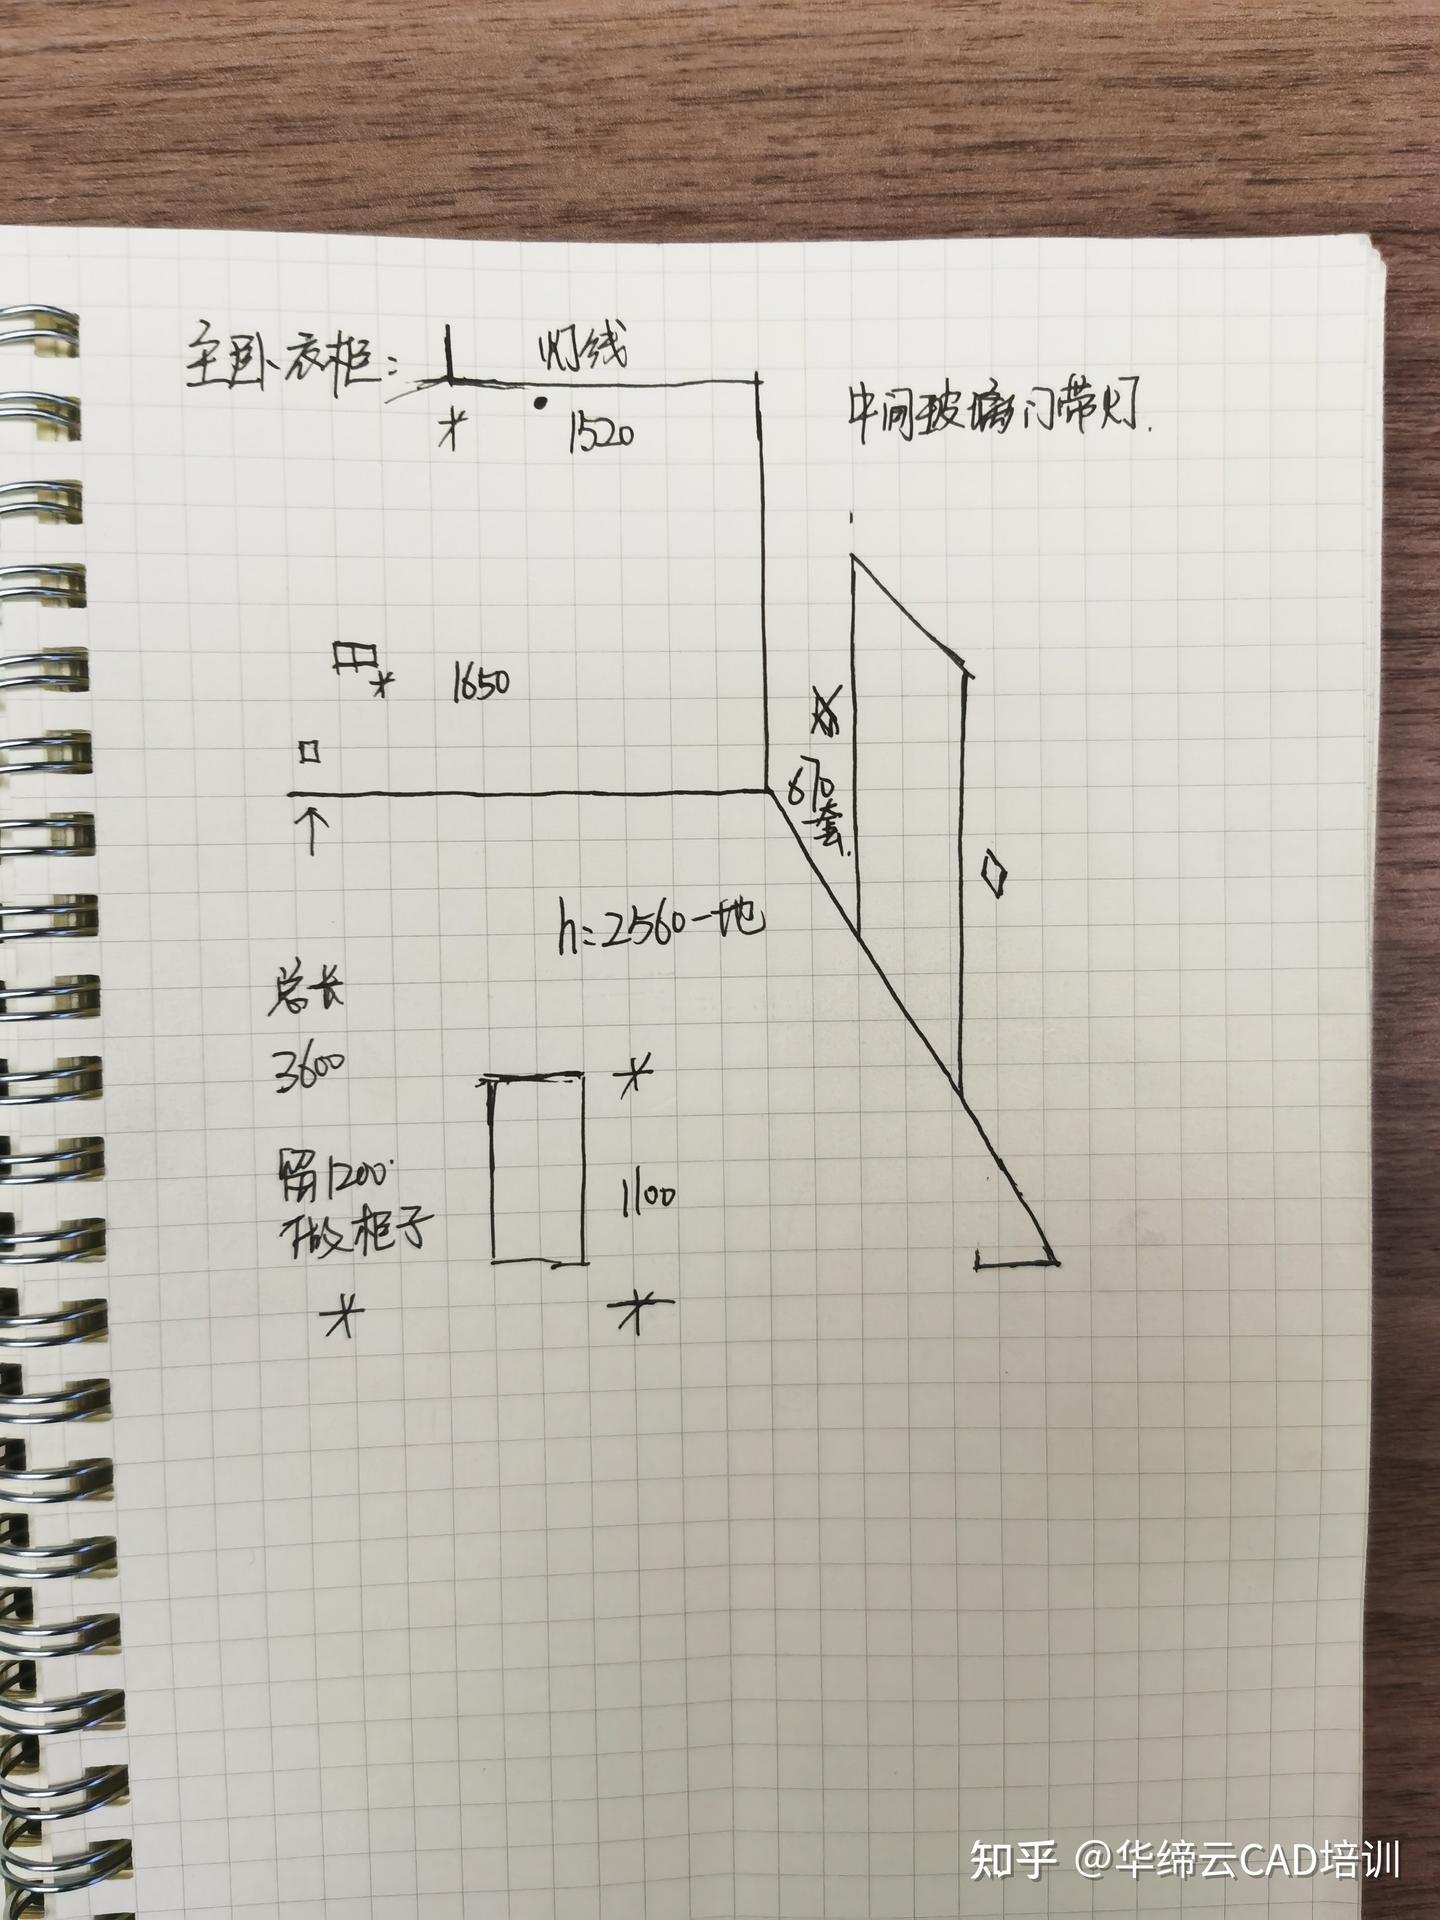 主卧衣柜:
灯线
1520
中间玻璃门带灯.
1650
670
套
h=2560-地
总长
3600
留1200
做柜子
1100
知乎 @华缔云CAD培训